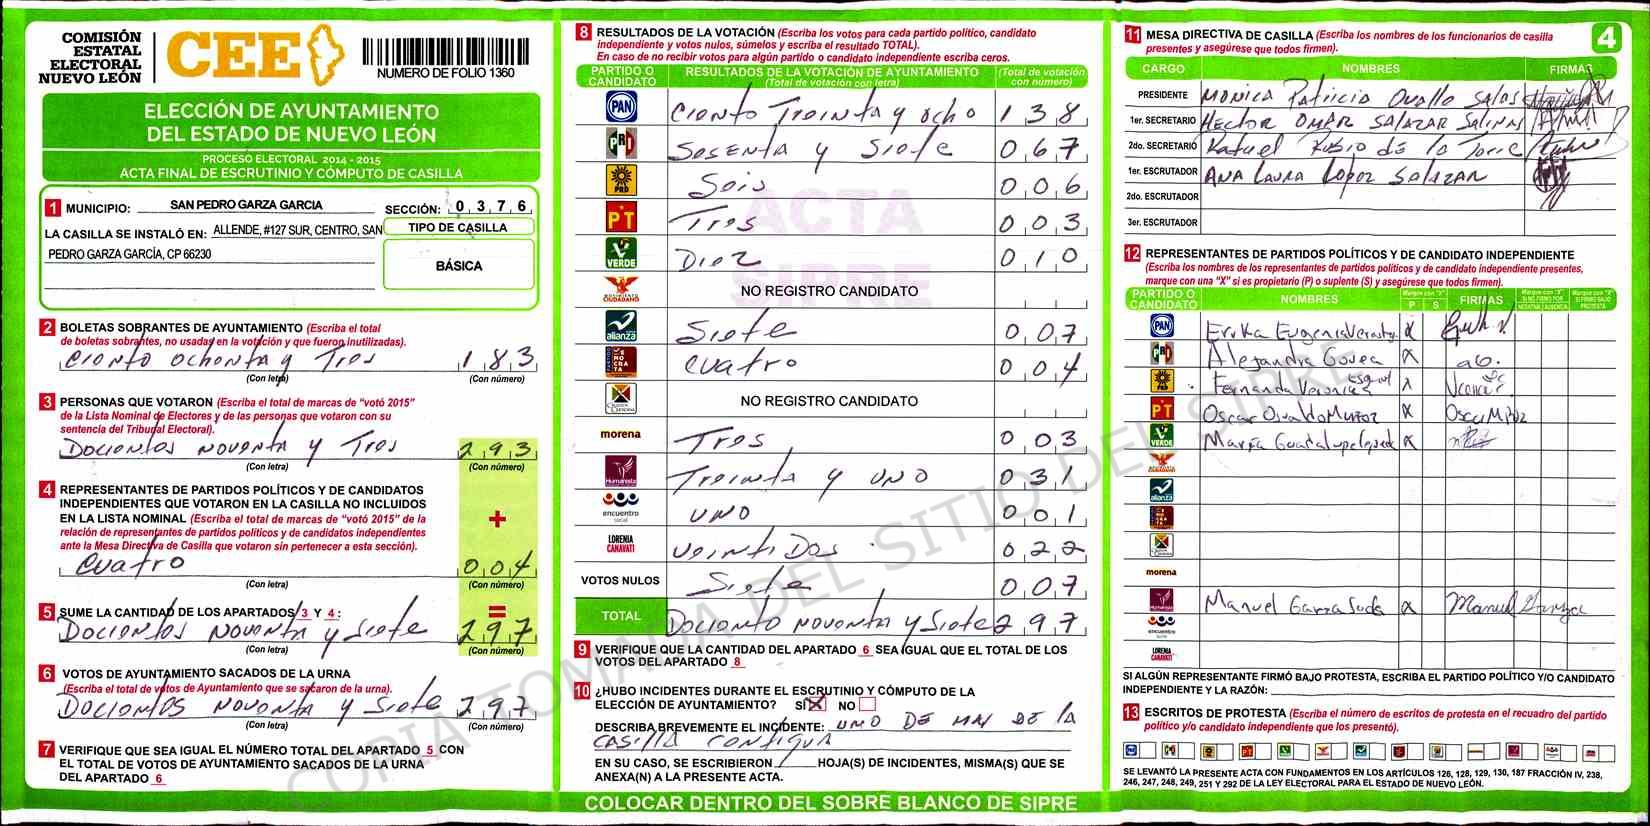 COMISIÓN
ESTATAL
ELECTORAL
NUEVO LEÓN
CEE
NUMERO DE FOLIO 1360
ELECCIÓN DE AYUNTAMIENTO
DEL ESTADO DE NUEVO LEÓN
PROCESO ELECTORAL 2014 - 2015
ACTA FINAL DE ESCRUTINIO Y CÓMPUTO DE CASILLA
1 MUNICIPIO: SAN PEDRO GARZA GARCIA SECCIÓN: 0 3 7 6
LA CASILLA SE INSTALÓ EN: ALLENDE, #127 SUR, CENTRO, SAN
PEDRO GARZA GARCÍA, CP 66230
TIPO DE CASILLA
BÁSICA
2 BOLETAS SOBRANTES DE AYUNTAMIENTO (Escriba el total
de boletas sobrantes, no usadas en la votación y que fueron inutilizadas).
Ciento Ochenta y Tres 1 8 3
(Con letra) (Con número)
3 PERSONAS QUE VOTARON (Escriba el total de marcas de “votó 2015”
de la Lista Nominal de Electores y de las personas que votaron con su
sentencia del Tribunal Electoral).
Docientos noventa y Tres 2 9 3
(Con letra) (Con número)
4 REPRESENTANTES DE PARTIDOS POLÍTICOS Y DE CANDIDATOS
INDEPENDIENTES QUE VOTARON EN LA CASILLA NO INCLUIDOS
EN LA LISTA NOMINAL (Escriba el total de marcas de “votó 2015” de la
relación de representantes de partidos políticos y de candidatos independientes
ante la Mesa Directiva de Casilla que votaron sin pertenecer a esta sección).
+
Cuatro 0 0 4
(Con letra) (Con número)
5 SUME LA CANTIDAD DE LOS APARTADOS 3 Y 4: =
Docientos noventa y Siete 2 9 7
(Con letra) (Con número)
6 VOTOS DE AYUNTAMIENTO SACADOS DE LA URNA
(Escriba el total de votos de Ayuntamiento que se sacaron de la urna).
Docientos noventa y Siete 2 9 7
(Con letra) (Con número)
7 VERIFIQUE QUE SEA IGUAL EL NÚMERO TOTAL DEL APARTADO 5 CON
EL TOTAL DE VOTOS DE AYUNTAMIENTO SACADOS DE LA URNA
DEL APARTADO 6
8 RESULTADOS DE LA VOTACIÓN (Escriba los votos para cada partido político, candidato
independiente y votos nulos, súmelos y escriba el resultado TOTAL).
En caso de no recibir votos para algún partido o candidato independiente escriba ceros.
PARTIDO O CANDIDATO RESULTADOS DE LA VOTACIÓN DE AYUNTAMIENTO (Total de votación con letra) (Total de votación con número)
PAN Ciento Treinta y ocho 1 3 8
PRD Sesenta y Siete 0 6 7
PRD Seis 0 0 6
PT Tres 0 0 3
VERDE Diez 0 1 0
MOVIMIENTO CIUDADANO NO REGISTRO CANDIDATO
alianza Siete 0 0 7
DEMOCRATA Cuatro 0 0 4
NO REGISTRO CANDIDATO
morena Tres 0 0 3
Humanista Treinta y uno 0 3 1
encuentro social uno 0 0 1
LORENIA CANAVATI Veinti Dos 0 2 2
VOTOS NULOS Siete 0 0 7
TOTAL Dociento noventa y Siete 2 9 7
ACTA
SIPRE
9 VERIFIQUE QUE LA CANTIDAD DEL APARTADO 6 SEA IGUAL QUE EL TOTAL DE LOS
VOTOS DEL APARTADO 8
10 ¿HUBO INCIDENTES DURANTE EL ESCRUTINIO Y CÓMPUTO DE LA
ELECCIÓN DE AYUNTAMIENTO? SÍ X NO
DESCRIBA BREVEMENTE EL INCIDENTE: uno de mas de la
casilla contigua
EN SU CASO, SE ESCRIBIERON HOJA(S) DE INCIDENTES, MISMA(S) QUE SE
ANEXA(N) A LA PRESENTE ACTA.
COLOCAR DENTRO DEL SOBRE BLANCO DE SIPRE
11 MESA DIRECTIVA DE CASILLA (Escriba los nombres de los funcionarios de casilla
presentes y asegúrese que todos firmen).
4
CARGO NOMBRES FIRMAS
PRESIDENTE Monica Patricia Ovallo Salas
1er. SECRETARIO Hector Omar Salazar Salinas
2do. SECRETARIO Rafael Rubio de la Torre
1er. ESCRUTADOR Ana Laura Lopez Salazar
2do. ESCRUTADOR
3er. ESCRUTADOR
12 REPRESENTANTES DE PARTIDOS POLÍTICOS Y DE CANDIDATO INDEPENDIENTE
(Escriba los nombres de los representantes de partidos políticos y de candidato independiente presentes,
marque con una “X” si es propietario (P) o suplente (S) y asegúrese que todos firmen).
PARTIDO O CANDIDATO NOMBRES Marque con “X” P S FIRMAS
PAN Erika Eugenia x
Alejandra Govea x
PRD Fernanda Veronica x
PT Oscar Ovaldo Muñoz x
VERDE Maria Guadalupe x
alianza
morena
Humanista Manuel Garza Sada x
encuentro
LORENIA CANAVATI
SI ALGÚN REPRESENTANTE FIRMÓ BAJO PROTESTA, ESCRIBA EL PARTIDO POLÍTICO Y/O CANDIDATO
INDEPENDIENTE Y LA RAZÓN:
13 ESCRITOS DE PROTESTA (Escriba el número de escritos de protesta en el recuadro del partido
político y/o candidato independiente que los presentó).
SE LEVANTÓ LA PRESENTE ACTA CON FUNDAMENTOS EN LOS ARTÍCULOS 126, 128, 129, 130, 187 FRACCIÓN IV, 238,
246, 247, 248, 249, 251 Y 292 DE LA LEY ELECTORAL PARA EL ESTADO DE NUEVO LEÓN.
COPIA TOMADA DEL SITIO DEL SIPRE